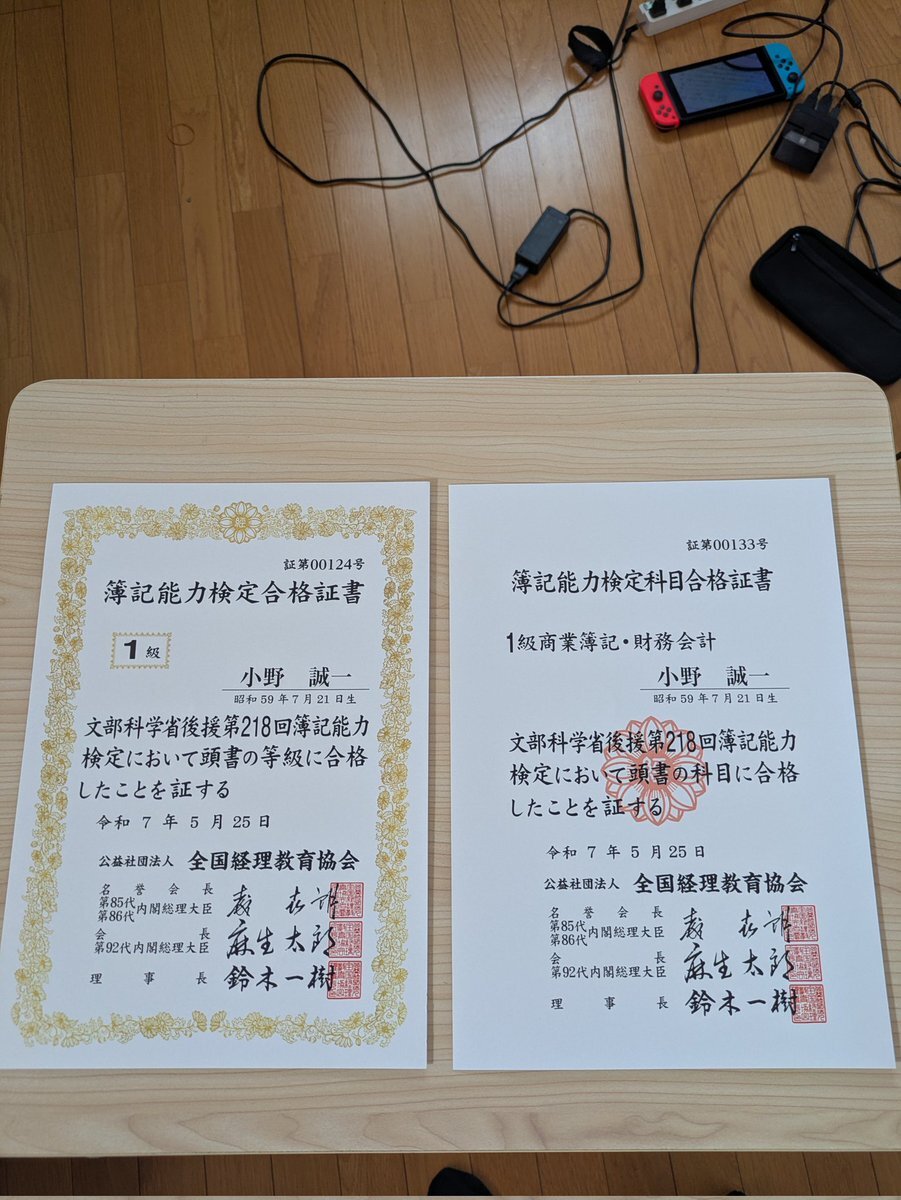 証第00124号
簿記能力検定合格証書
1級
小野 誠一
昭和59年7月21日生
文部科学省後援第218回簿記能力
検定において頭書の等級に合格
したことを証する
令和 7 年 5 月 25 日
公益社団法人 全国経理教育協会
名誉会長
第85代
第86代
内閣総理大臣
森 喜朗
会長
第92代内閣総理大臣
麻生太郎
理事長
鈴木一樹
証第00133号
簿記能力検定科目合格証書
1級商業簿記・財務会計
小野 誠一
昭和59年7月21日生
文部科学省後援第218回簿記能力
検定において頭書の科目に合格
したことを証する
令和 7 年 5 月 25 日
公益社団法人 全国経理教育協会
名誉会長
第85代
第86代
内閣総理大臣
森 喜朗
会長
第92代内閣総理大臣
麻生太郎
理事長
鈴木一樹